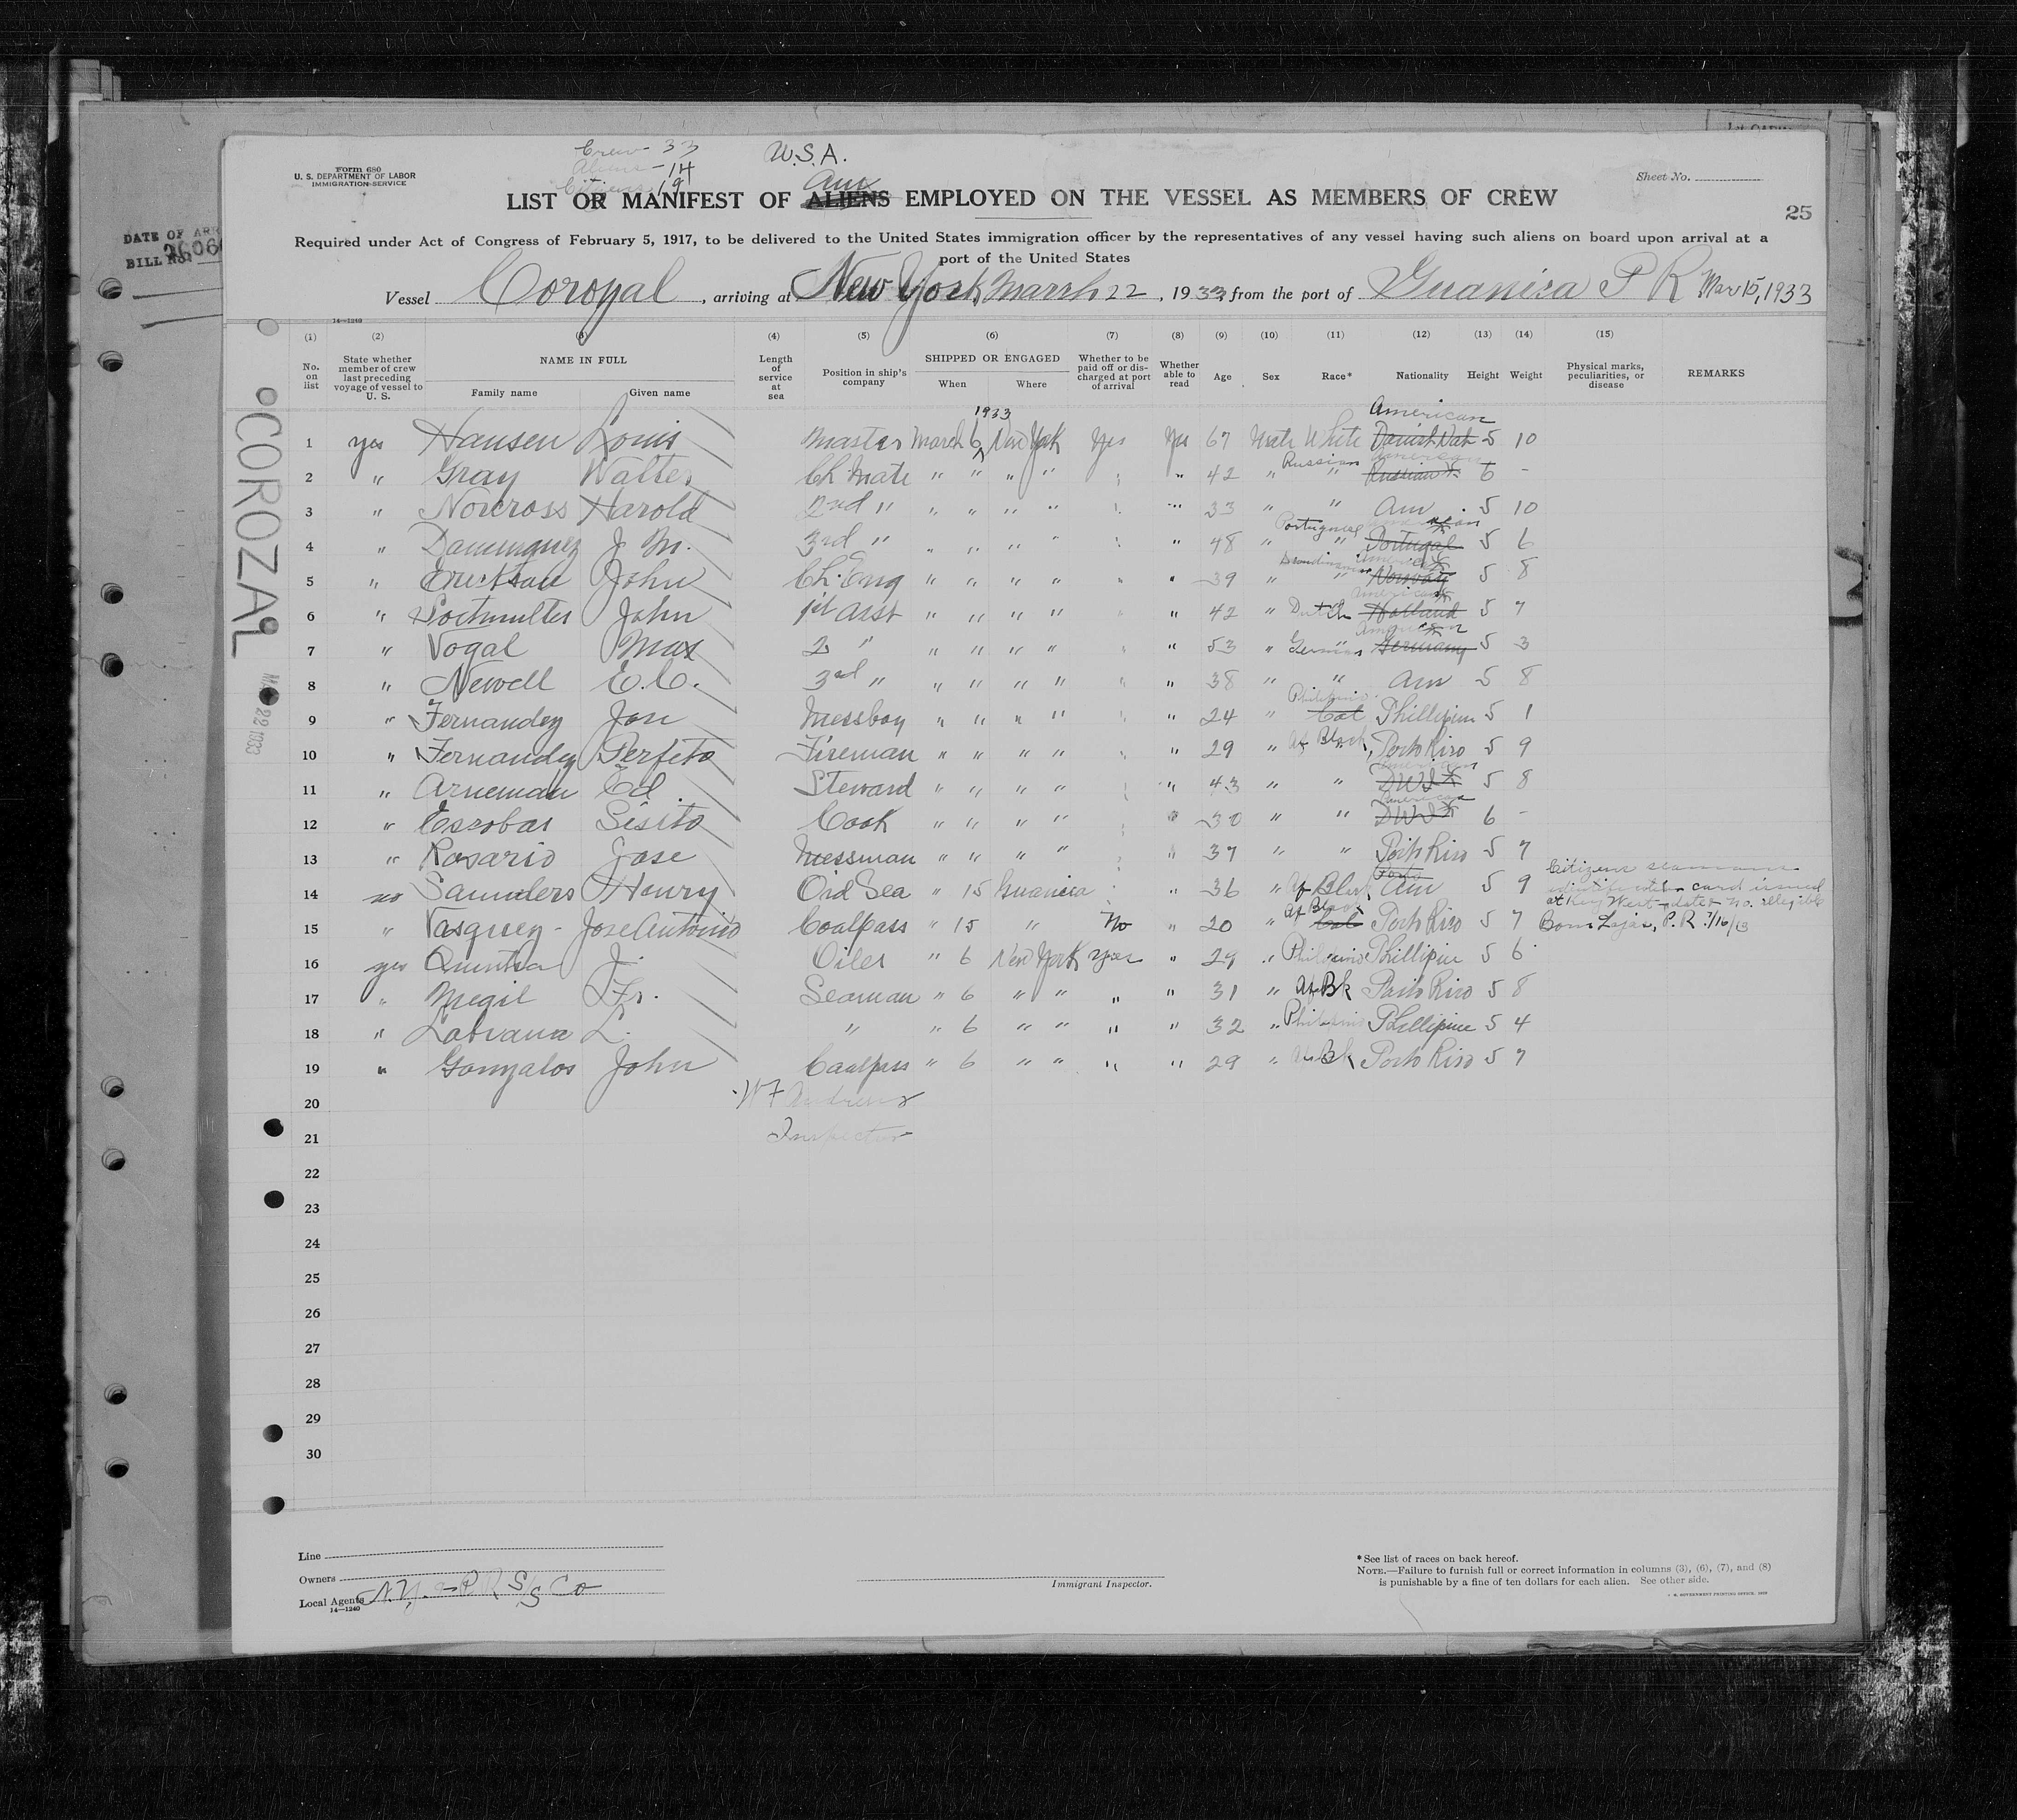 Crew - 33
Aliens - 14
Citizens 19
U.S.A.
Am
Form 680
U. S. DEPARTMENT OF LABOR
IMMIGRATION SERVICE
Sheet No.
LIST OR MANIFEST OF ALIENS EMPLOYED ON THE VESSEL AS MEMBERS OF CREW
25
DATE OF ARR
BILL NO.
Required under Act of Congress of February 5, 1917, to be delivered to the United States immigration officer by the representatives of any vessel having such aliens on board upon arrival at a
port of the United States
Vessel Corozal, arriving at New York, March 22, 1933, from the port of Guanica P R Mar 15, 1933
14—1240
(1) (2) (3) (4) (5) (6) (7) (8) (9) (10) (11) (12) (13) (14) (15)
No. on list
State whether member of crew last preceding voyage of vessel to U. S.
NAME IN FULL
Family name Given name
Length of service at sea
Position in ship's company
SHIPPED OR ENGAGED
When Where
Whether to be paid off or discharged at port of arrival
Whether able to read
Age Sex Race* Nationality Height Weight
Physical marks, peculiarities, or disease
REMARKS
COROZAL
MAR 22 1933
1933
American
1 yes Hansen Louis Master March 6 New York Yes Yes 67 Male White Danish Nat 5 10
Russian American
2 " Gray Walter Ch Mate " " " " " " 42 " " Russian 6 -
3 " Norcross Harold 2nd " " " " " " " 33 " " Am 5 10
Portuguese American
4 " Dominguez J M. 3rd " " " " " " " 48 " " Portugal 5 6
Scandinavian American
5 " Erickson John Ch. Eng " " " " " " 39 " " Norway 5 8
American
6 " Portmulter John 1st Asst " " " " " " 42 " Dutch Holland 5 7
American
7 " Vogal Max 2 " " " " " " " 53 " German Germany 5 3
8 " Newell E.C. 3rd " " " " " " " 38 " " Am 5 8
Philipino
9 " Fernandez Jose Messboy " " " " " " 24 " Col Phillipine 5 1
10 " Fernandez Perfeto Fireman " " " " " " 29 " Af Black Porto Rico 5 9
American
11 " Arneman Ed Steward " " " " " " 43 " " DWI 5 8
American
12 " Escobar Sisito Cook " " " " " " 30 " " DWI 6 -
13 " Rosario Jose Messman " " " " " " 37 " " Porto Rico 5 7
14 no Saunders Henry Ord Sea " 15 Guanica " " 36 " Af Black Am 5 9
Citizens seamans
identification card issued
at Key West - date + no. illegible
Af Black
15 " Vasquez - Jose Antonio Coalpass " 15 " No " 20 " Col Porto Rico 5 7 Born Lajas, P.R. 7/16/13
16 yes J. Oiler " 6 New York yes " 29 " Philipino Phillipine 5 6
17 " Megil Fr. Seaman " 6 " " " " 31 " Af Bk Porto Rico 5 8
18 " L. " " 6 " " " " 32 " Philipino Phillipine 5 4
19 " Gonzalos John Coalpass " 6 " " " " 29 " Af Bk Porto Rico 5 7
20 W F Andrews
21 Inspector
22
23
24
25
26
27
28
29
30
Line
Owners
Local Agents N.Y. & P R S/S Co
14—1240
Immigrant Inspector.
*See list of races on back hereof.
NOTE.—Failure to furnish full or correct information in columns (3), (6), (7), and (8)
is punishable by a fine of ten dollars for each alien. See other side.